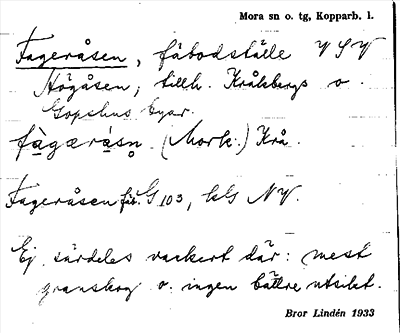 Mora sn o. tg, Kopparb. l.
Fageråsen, fäbodställe V S V
Högåsen, tillh. Kråkbergs o.
Gopshus byar.
fàgærásn (Mork.) Krå.
Fageråsen fäb. G 103, kG NV.
Ej särdeles vackert där: mest
granskog o. ingen bättre utsikt.
Bror Lindén 1933